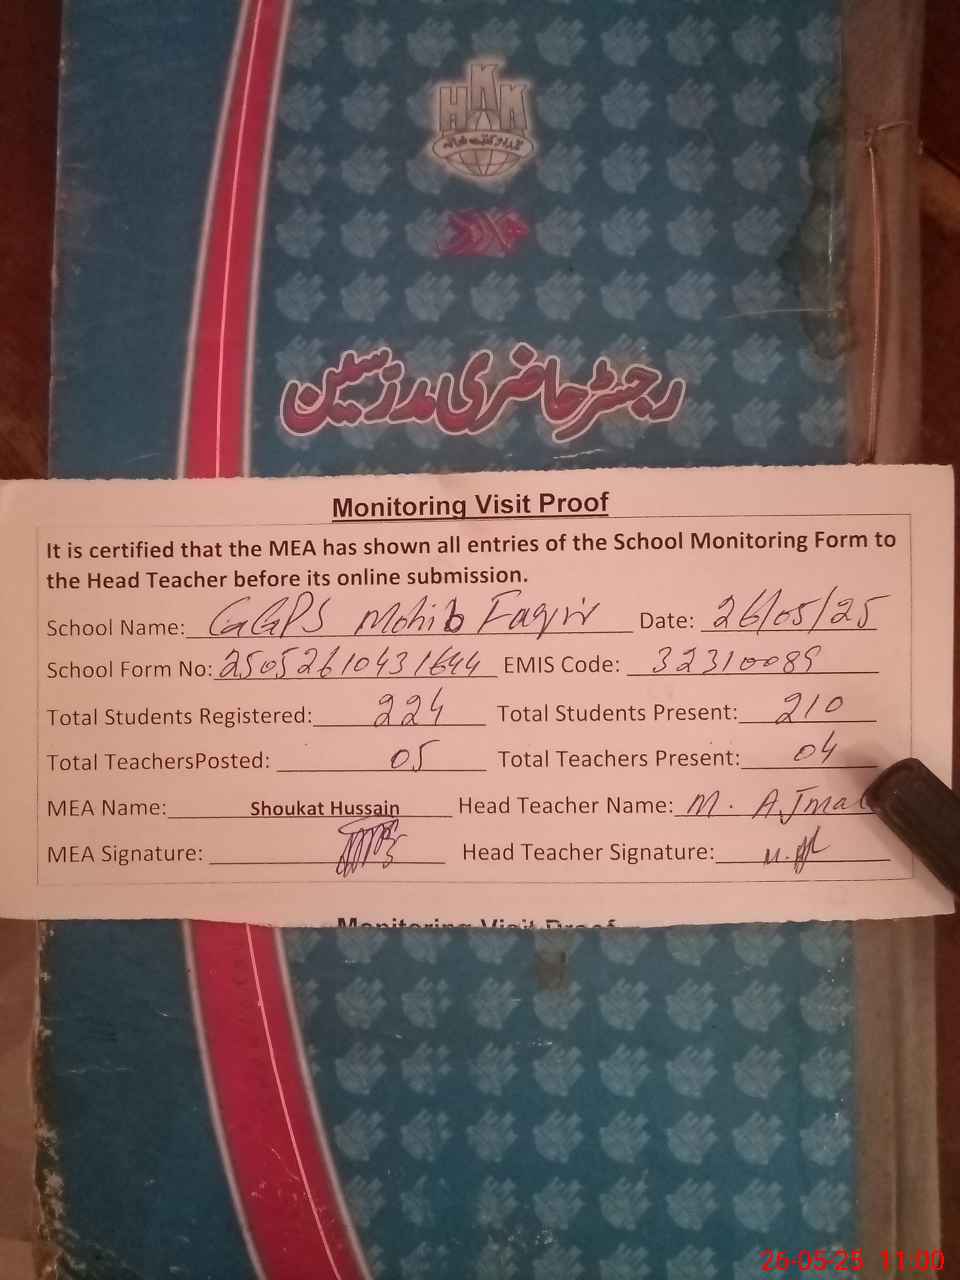 HKK
قدرداد کتب خانہ
رجسٹر حاضری مدرسین
Monitoring Visit Proof
It is certified that the MEA has shown all entries of the School Monitoring Form to
the Head Teacher before its online submission.
School Name: GGPS Mohib Faqir Date: 26/05/25
School Form No: 25052610431644 EMIS Code: 32310089
Total Students Registered: 224 Total Students Present: 210
Total TeachersPosted: 05 Total Teachers Present: 04
MEA Name: Shoukat Hussain Head Teacher Name: M. Ajmal
MEA Signature: Head Teacher Signature:
Monitoring Visit Proof
26-05-25 11:00